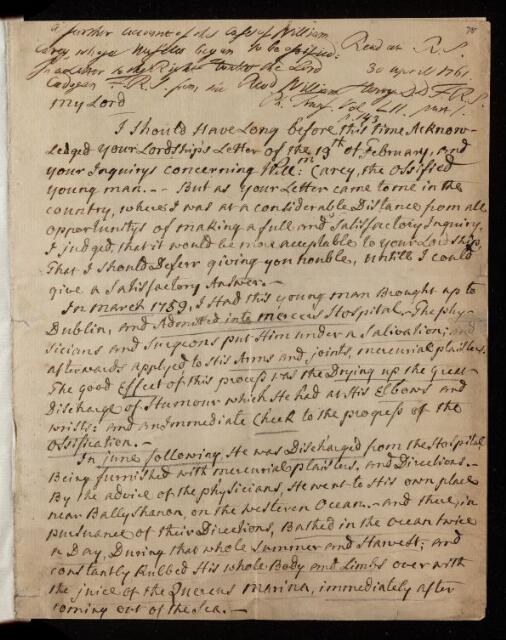 A further account of the Case of William
Carey whose Muscles began to be ossified:
Read at R.S.
30 April 1761
78
in a Letter to the Right the Lord
Cadogan F.R.S. from the Revd William Henry D.D. F.R.S.
Ph. Trans. Vol. LII. part 1.
p. 143
My Lord
I Should Have Long before this time Acknow-
Ledged your Lordships Letter of the 13th of February, and
your Inquirys concerning Will:m Carey, the Ossified
young man. -- But as your Letter came to me in the
country, where I was at a considerable Distance from all
opportunitys of making a full and Satisfactory Inquiry,
I judged, that it would be more acceptable to your Lordship,
That I Should Deferr giving you trouble, untill I could
give a Satisfactory Answer. -
In March 1759, I Had this young man Brought up to
Dublin, and Admitted into Mercers Hospital. - The phy-
sicians and Surgeons put Him under a Salivation; and
afterwards applyed to His Arms and joints, mercurial plaisters.
The good Effect of this process was the Drying up the Great
Discharge of Humour which He had at His Elbows and
wrists: and an Immediate Check to the progress of the
Ossification. -
In June following, He was Discharged from the Hospital
Being furnished with mercurial plaisters, and Directions. -
By the advice of the physicians, He went to His own place
near Ballyshanon, on the Western Ocean. - and there, in
pursuance of their Directions, Bathed in the Ocean twice
a Day, During that whole Summer and Harvest; and
constantly Rubbed His whole Body and Limbs over with
the juice of the Quercus Marina, immediately after
coming out of the Sea. -